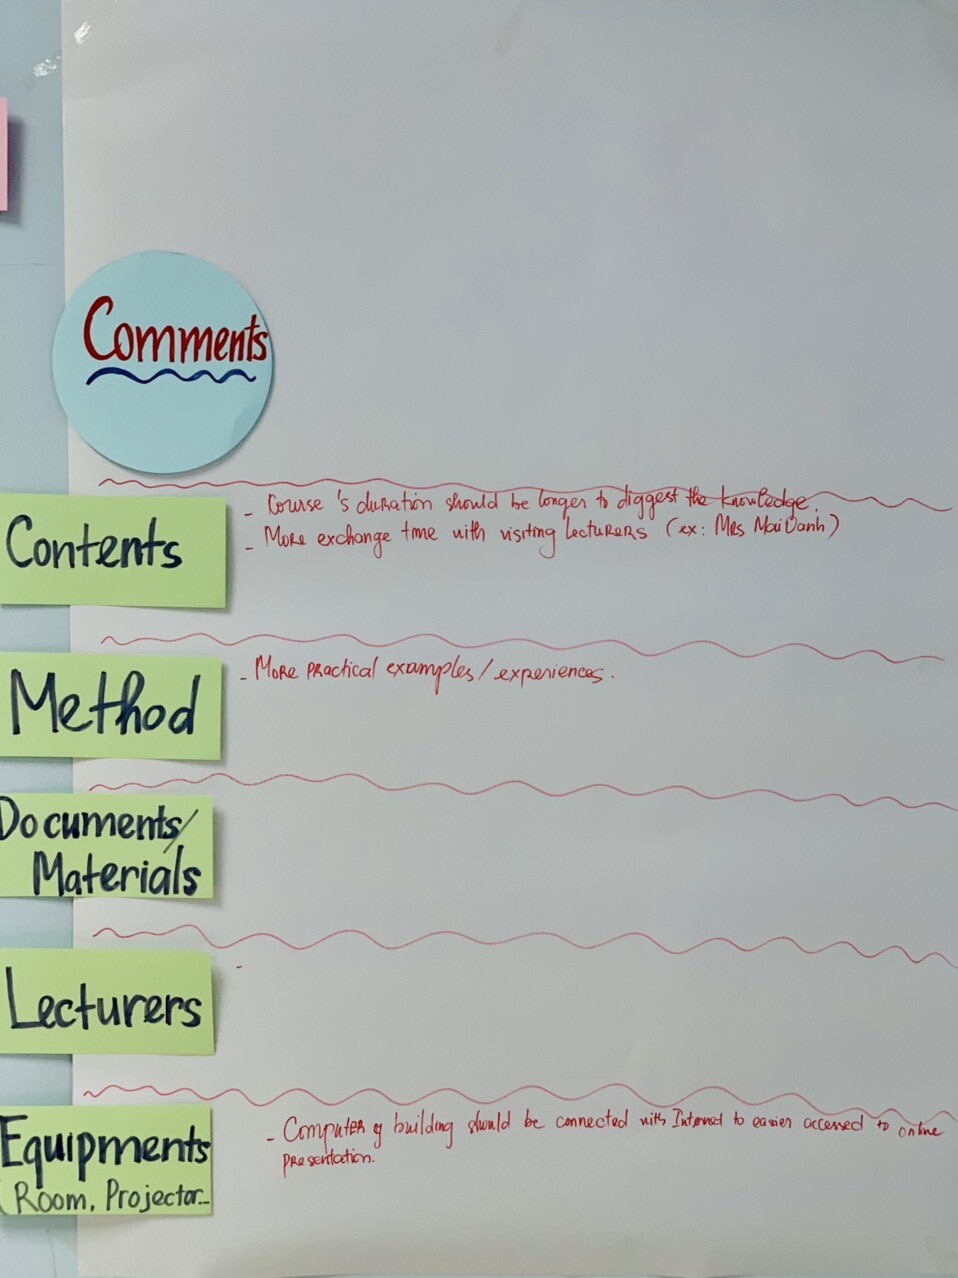 Comments
Contents
- Course 's duration should be longer to diggest the knowledge.
- More exchange time with visiting lecturers (ex: Mrs Mai Oanh)
Method
- More practical examples/experiences.
Documents/
Materials
Lecturers
-
Equipments
(Room, Projector...
- Computer of building should be connected with Internet to easier accessed to online
presentation.